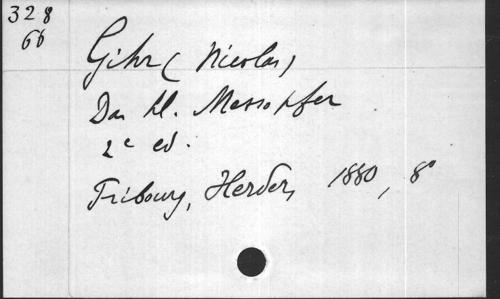 328
66
Gihr (Nicolas)
Das hl. Messopfer
2e ed.
Fribourg, Herder, 1880, 8°